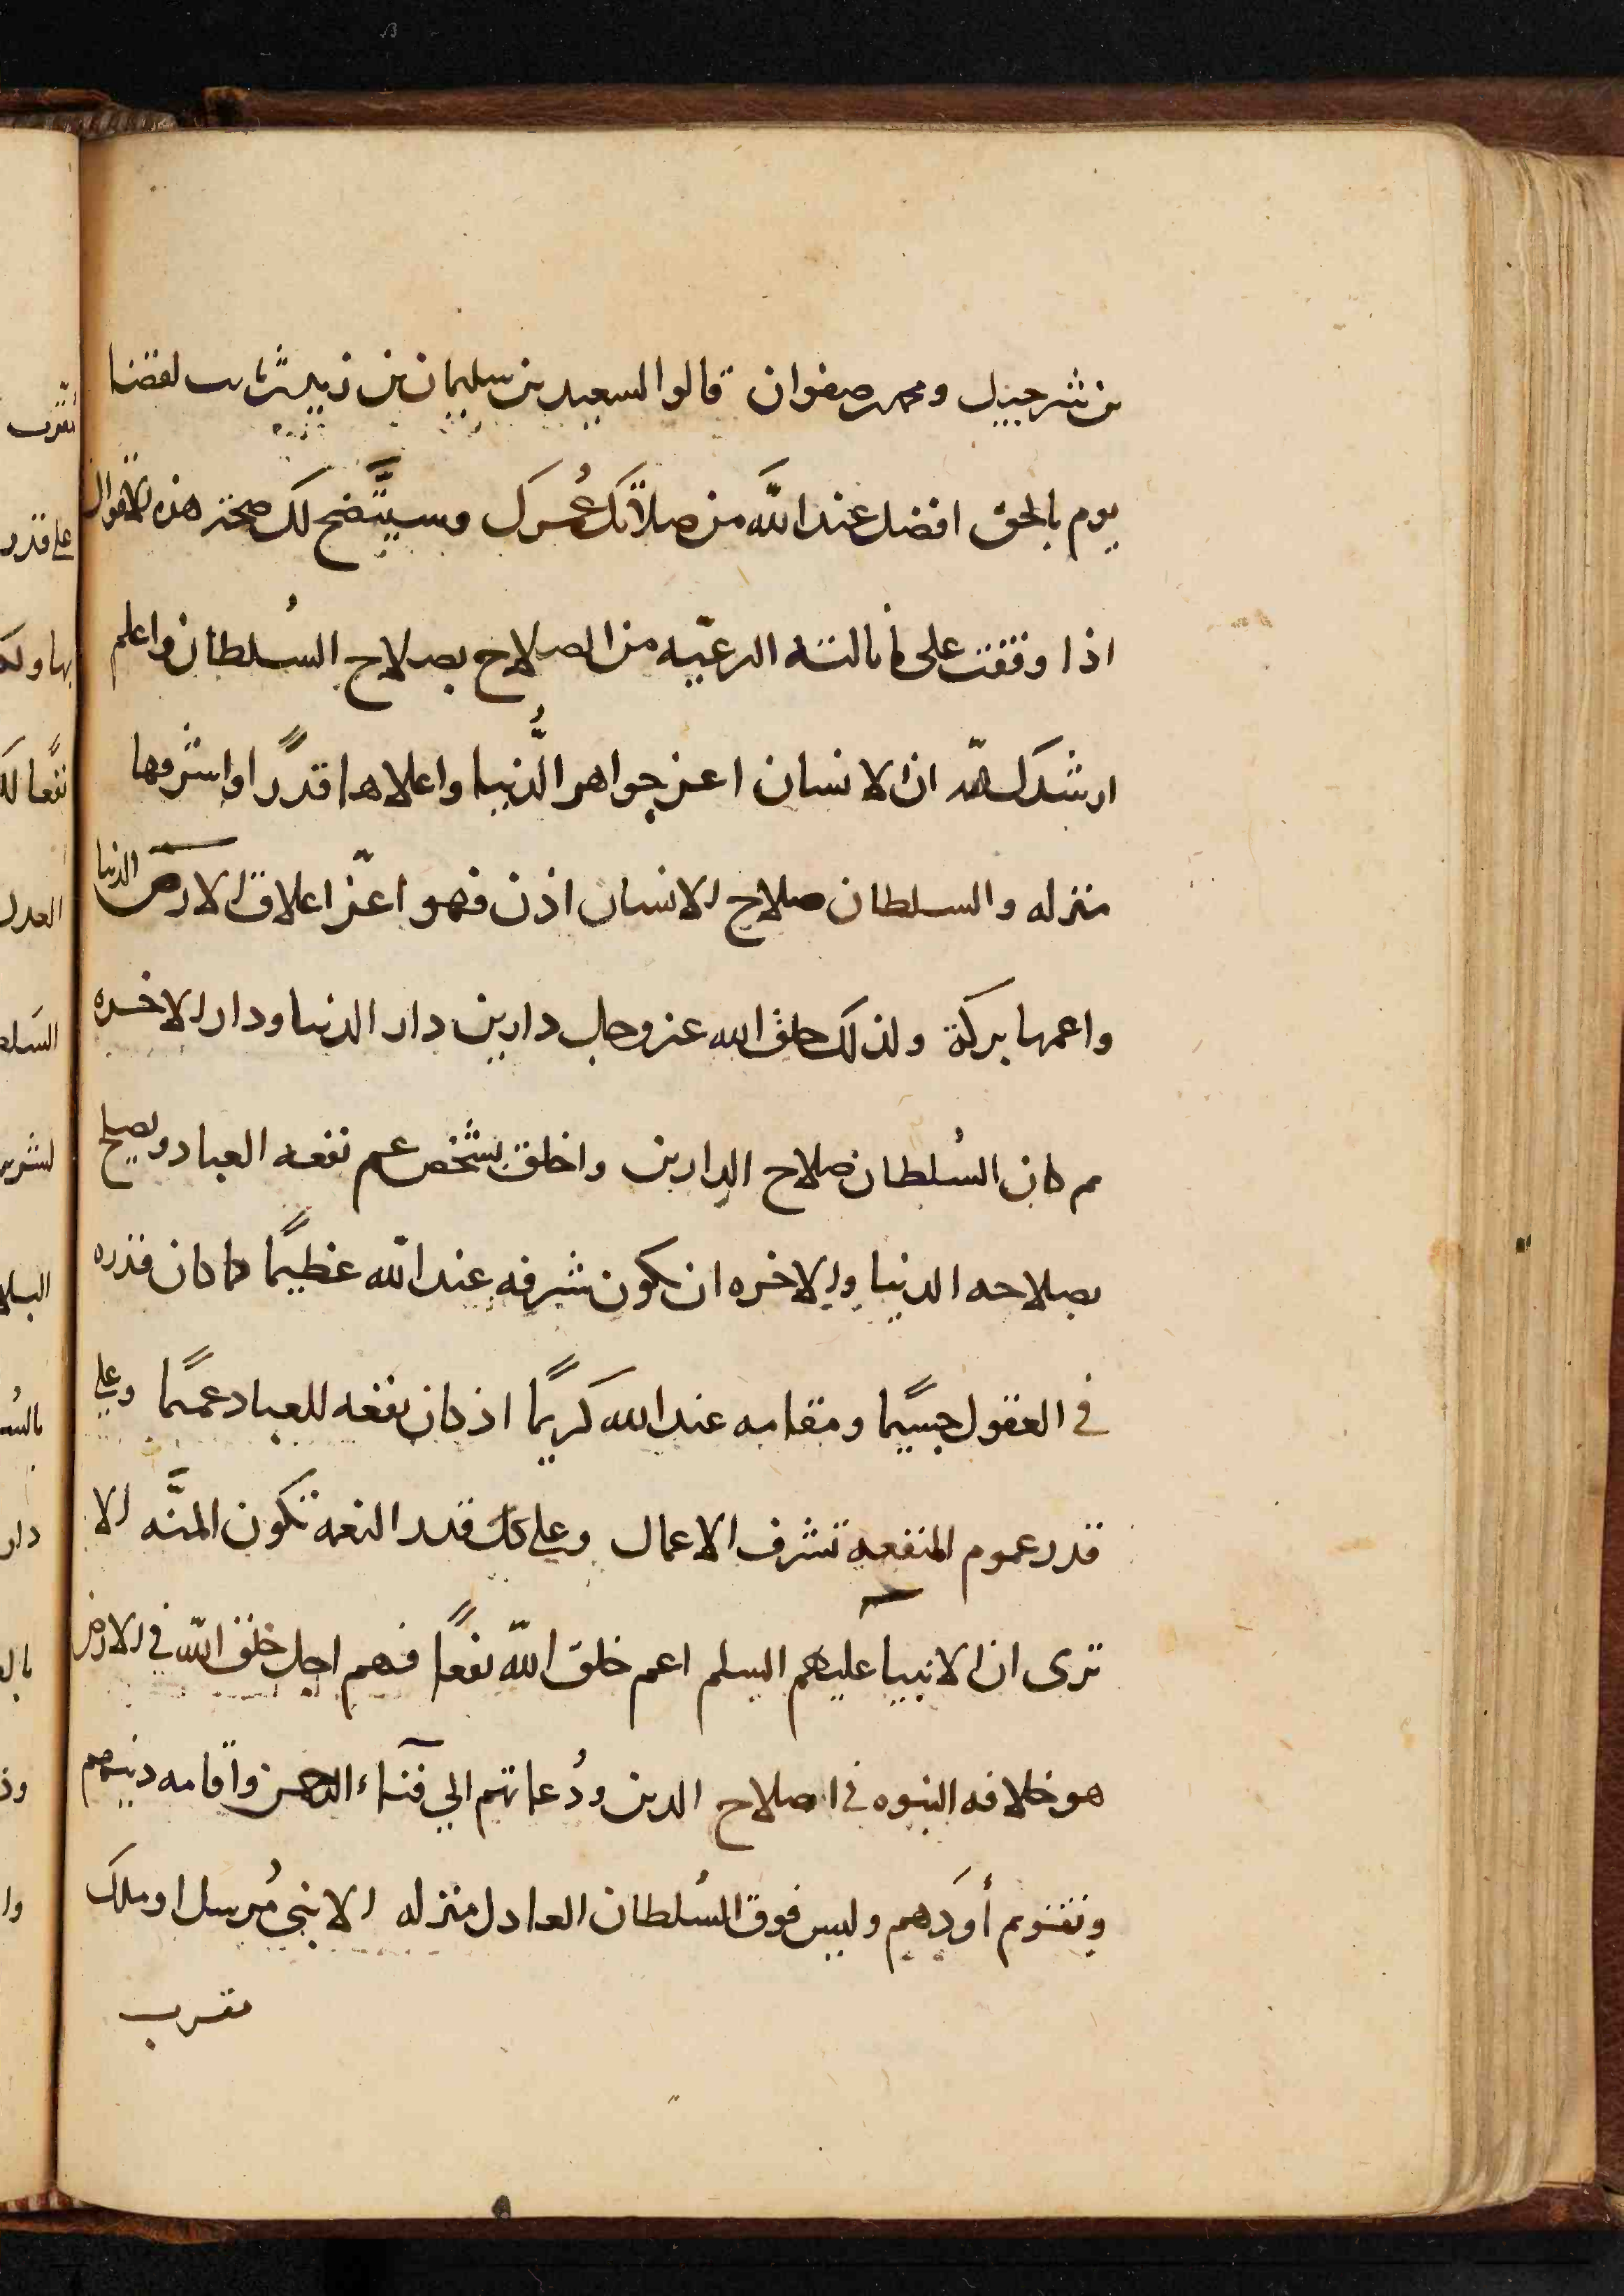 بن شرحبيل ومحمد صفوان قالوا لسعيد بن سليمان بن زيد ثابت لقضا
يوم بالحق افضل عند الله من صلاتك عُمرك وسيتَّضح لك صحة هذه الاقوال
اذا وقفت على ما نالته الرعيّه من الصلاح بصلاح السُلطان واعلم
ارشدك الله ان الانسان اعز جواهر الدُّنيا واعلاها قدرًا واشرفها
منزله والسلطان صلاح الانسان اذن فهو اعزّ اعلاق الارض الدنيا
واعمها بركة ولذلك خلق الله عز وجل دارين دار الدنيا ودار الاخره
ثم كان السُلطان صلاح الدارين واخلق بشخص عم نفعه العباد ويصلح
بصلاحه الدنيا والاخره ان يكون شرفه عند الله عظيمًا كما كان قدره
في العقول جسيمًا ومقامه عند الله كريمًا اذ كان نفعه للعباد عميمًا وعلى
قدر عموم المنفعه تشرف الاعمال وعلى كل قدر النعمه تكون المنَّه الا
ترى ان الانبيا عليهم السلم اعم خلق الله نفعًا فهم اجل خلق الله في الارض
هو خلافه النبوه في اصلاح الدين ودُعاتهم الى فنآء الرحمن واقامه دينهم
وتقويم أوَدَهم وليس فوق السُلطان العادل منزله الا نبى مُرسل او ملك
مقرب